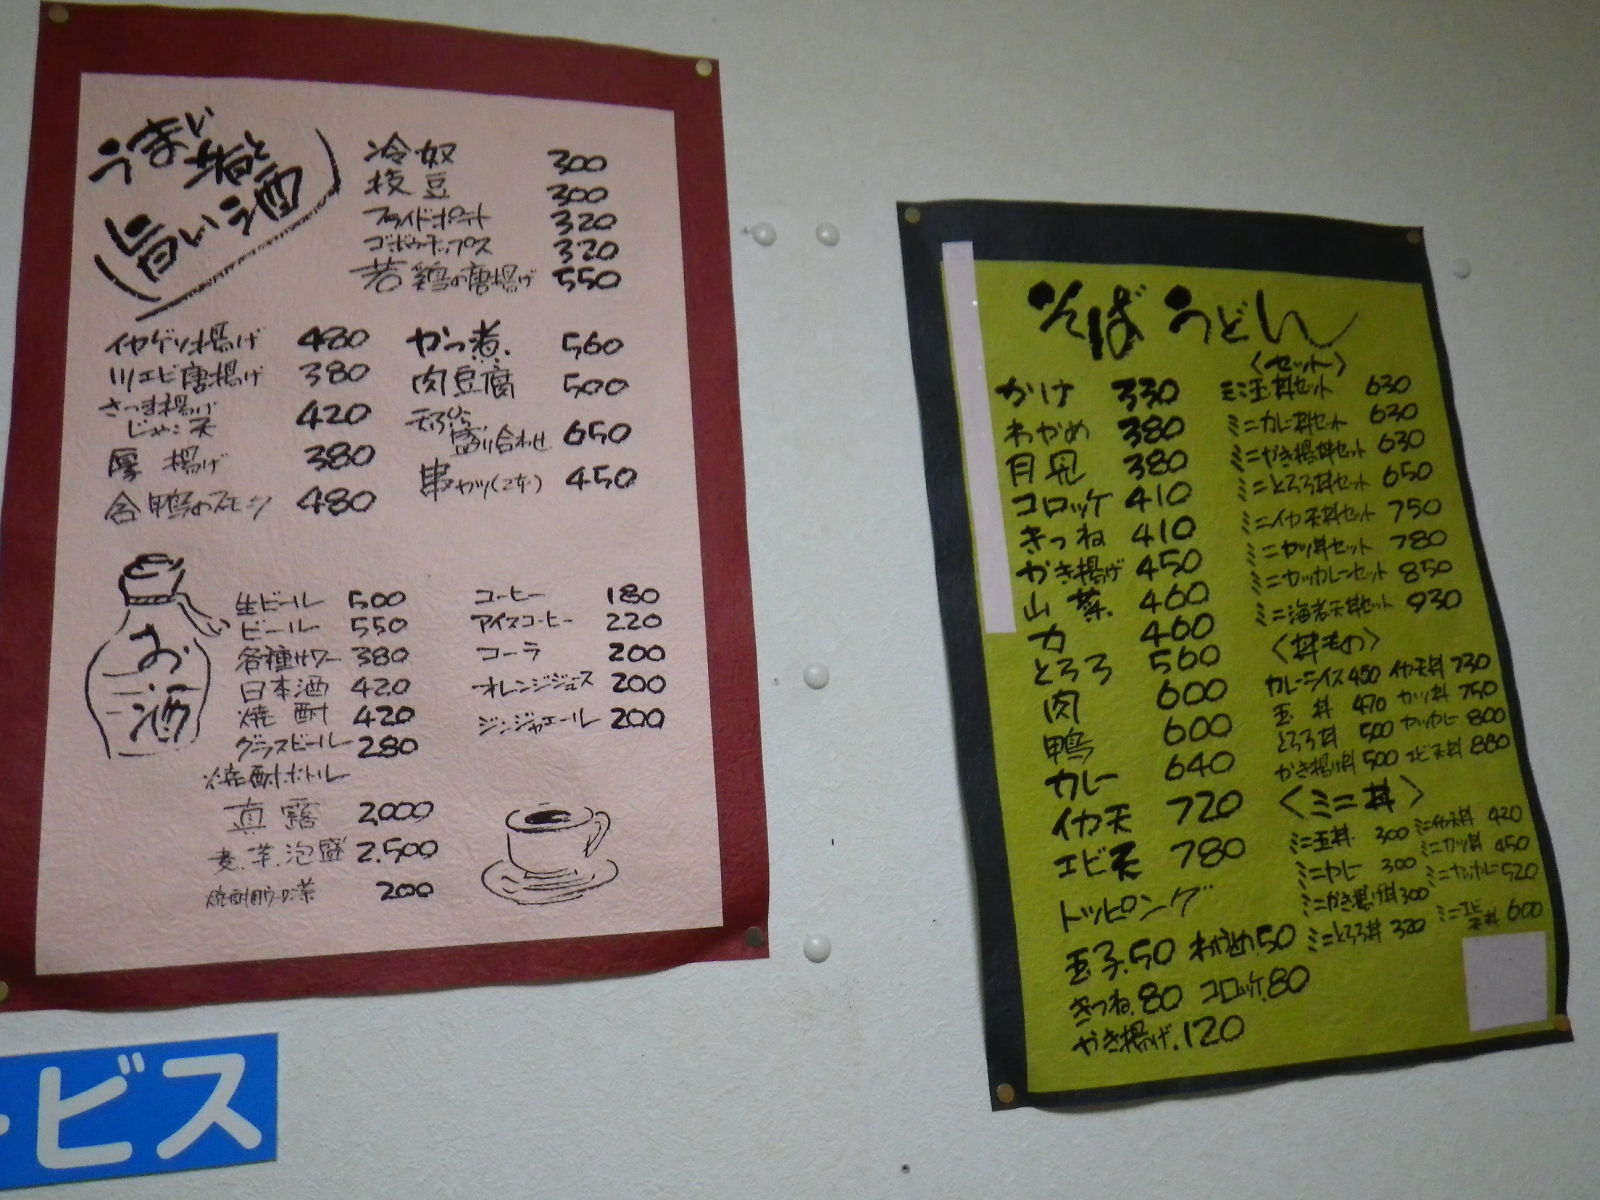 うまい肴と
旨い酒
冷奴 300
枝豆 300
フライドポテト 320
ゴボウチップス 320
若鶏の唐揚げ 550
イカゲソ揚げ 480
川エビ唐揚げ 380
さつま揚げ
じゃこ天 420
厚揚げ 380
合鴨のスモーク 480
かつ煮 560
肉豆腐 500
天ぷら
盛り合わせ 650
串カツ(2本) 450
お酒
生ビール 500
ビール 550
各種サワー 380
日本酒 420
焼酎 420
グラスビール 280
焼酎ボトル
真露 2,000
麦.芋.泡盛 2.500
焼酎用ウーロン茶 200
コーヒー 180
アイスコーヒー 220
コーラ 200
オレンジジュース 200
ジンジャエール 200
ービス
そば うどん
かけ 330
わかめ 380
月見 380
コロッケ 410
きつね 410
かき揚げ 450
山菜 460
力 460
とろろ 560
肉 600
鴨 600
カレー 640
イカ天 720
エビ天 780
トッピング
玉子.50 わかめ.50
きつね.80 コロッケ.80
かき揚げ.120
〈セット〉
ミニ玉丼セット 630
ミニカレー丼セット 630
ミニかき揚丼セット 630
ミニとろろ丼セット 650
ミニイカ天丼セット 750
ミニカツ丼セット 780
ミニカツカレーセット 850
ミニ海老天丼セット 930
〈丼もの〉
カレーライス 450 イカ天丼 730
玉丼 470 カツ丼 750
とろろ丼 500 カツカレー 800
かき揚げ丼 500 エビ天丼 880
〈ミニ丼〉
ミニ玉丼 300 ミニイカ天丼 420
ミニカレー 300 ミニカツ丼 450
ミニかき揚げ丼 300 ミニカツカレー 520
ミニとろろ丼 320 ミニエビ天丼 600